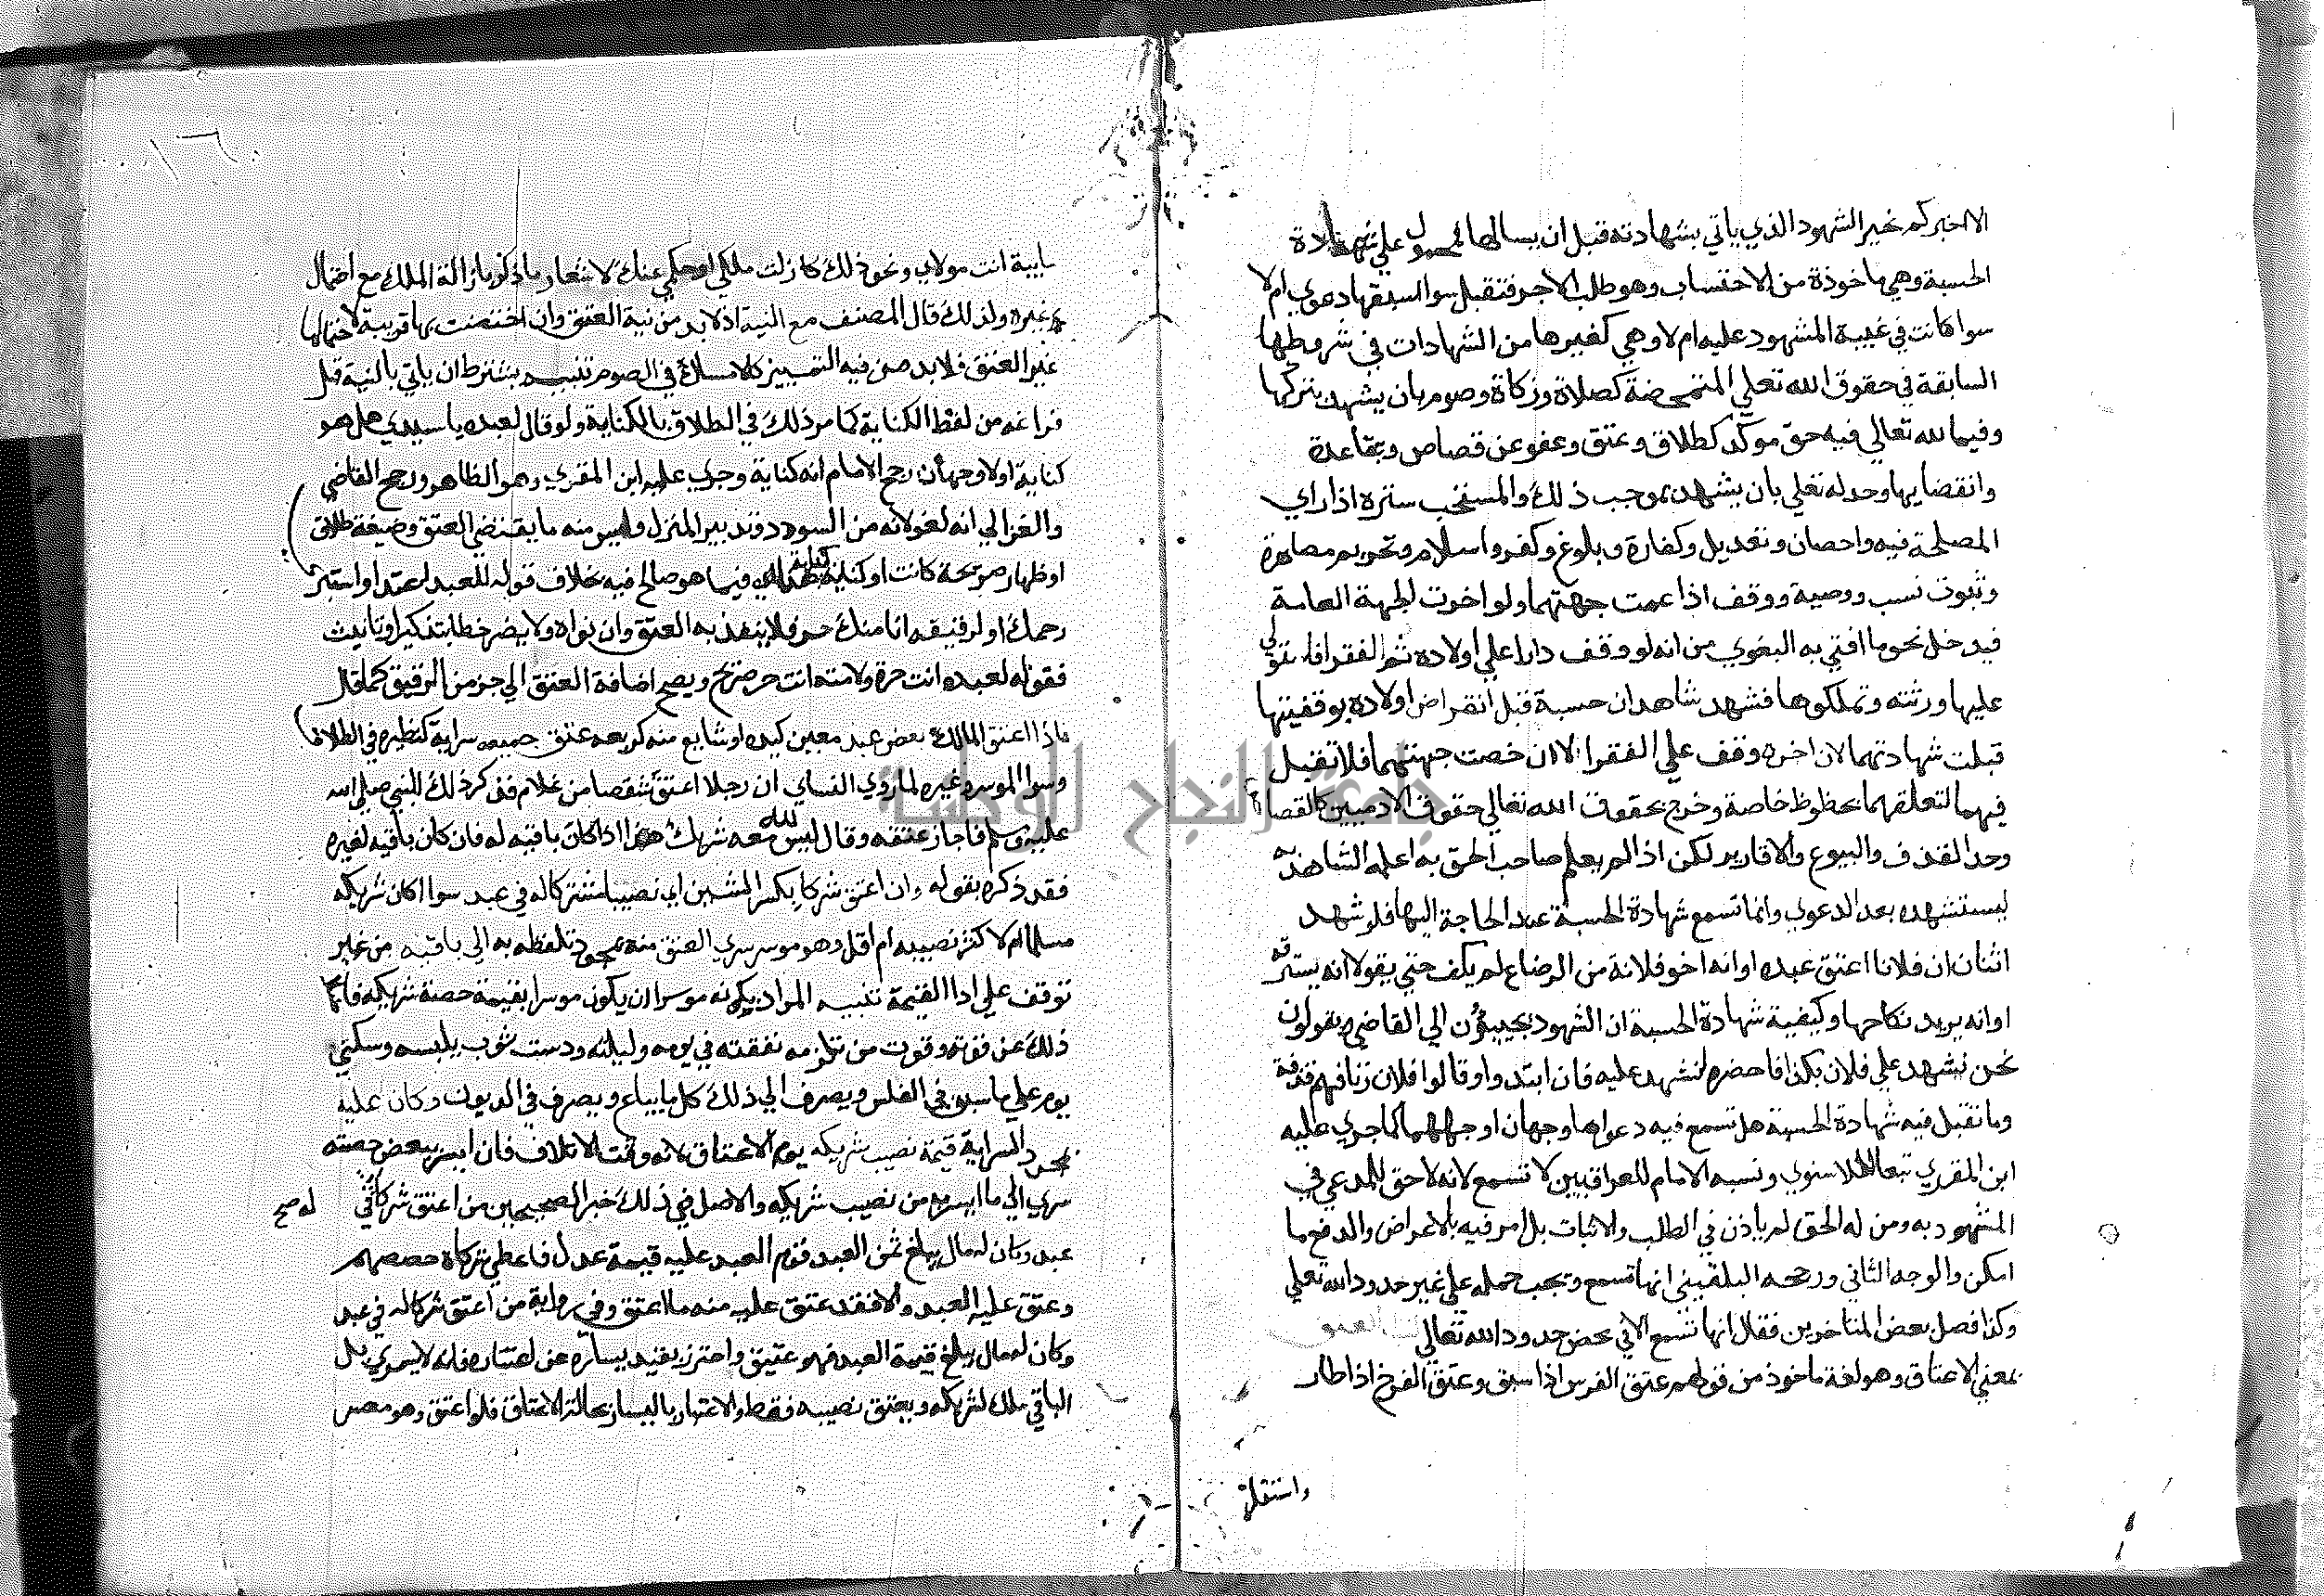 الا اخبركم بخير الشهود الذي ياتي بشهادته قبل ان يسالها محمول علي شهادة
الحسبة وهي ماخوذة من الاحتساب وهو طلب الاجر فتقبل سوا اسبقها دعوي ام لا
سوا كانت في غيبة المشهود عليه ام لا وهي كغيرها من الشهادات في شروطها
السابقة في حقوق الله تعلي المتمحضة كصلاة وزكاة وصوم بان يشهد بتركها
وفيما لله تعالي فيه حق موكد كطلاق وعتق وعفو عن قصاص وبقا عدة
وانقضايها وحد له تعلي بان يشهد بموجب ذلك والمستحب ستره اذا راي
المصلحة فيه واحصان وتعديل وكفارة وبلوغ وكفر واسلام وتحريم مصاهرة
وثبوت نسب ووصية ووقف اذا عمت جهتهما ولو اخرت الجهة العامة
فيدخل نحو ما افتي به البغوي من انه لو وقف دارا علي اولاده ثم الفقرا فاستولي
عليها ورثته وتملكوها فشهد شاهدان حسبة قبل انقراض اولاده بوقفيتها
قبلت شهادتهما لان اخره وقف علي الفقرا لا ان خصت جهتهما فلا تقبل
فيهما لتعلقهما بحظوظ خاصة وخرج بحقوق الله تعالي حقوق الادميين كالقصاص
وحد القذف والبيوع والاقارير لكن اذا لم يعلم صاحب الحق به اعلمه الشاهد به
ليستشهده بعد الدعوي وانما تسمع شهادة الحسبة عند الحاجة اليها فلو شهد
اثنان ان فلانا اعتق عبده او انه اخو فلانة من الرضاع لم يكف حتي يقولا انه يسترقه
او انه يريد نكاحها وكيفية شهادة الحسبة ان الشهود يجيئون الي القاضي ويقولون
نحن نشهد علي فلان بكذا فاحضره لنشهد عليه فان ابتدوا وقالوا فلان زنا فهم قذفة
وما تقبل فيه شهادة الحسبة هل تسمع فيه دعواها وجهان اوجههما كما جري عليه
ابن المقري تبعا للاسنوي ونسبه الامام للعراقيين لا تسمع لانه لا حق للمدعي في
المشهود به ومن له الحق لم ياذن في الطلب والاثبات بل امر فيه بالاعراض والدفع ما
امكن والوجه الثاني ورجحه البلقيني انها تسمع ويجب حمله علي غير حدود الله تعلي
وكذا فصل بعض المتاخرين فقال انها تسمع الا في محض حدود الله تعالي العتق
بمعني الاعتاق وهو لغة ماخوذ من قولهم عتق الفرس اذا سبق وعتق الفرخ اذا طار
واستقل
سايبة انت مولاي ونحو ذلك كازلت ملكي او حكمي عنك لاشعار ما ذكر بازالة الملك مع احتمال
غيره ولذلك قال المصنف مع النية اذ لا بد من نية العتق وان احتفت بها قرينة لاحتمالها
غير العتق فلا بد من فيه التمييز كالامساك في الصوم تنبيه يشترط ان ياتي بالنية قبل
فراغه من لفظ الكناية كما مر ذلك في الطلاق بالكناية ولو قال لعبده يا سيدي هل هو
كناية او لا وجهان رجح الامام انه كناية وجري عليه ابن المقري وهو الظاهر ورجح القاضي
والغزالي انه لغو لانه من السودد وتدبير المنزل وليس منه ما يقتضي العتق وصيغة طلاق
او ظهار صريحة كانت او كناية كناية فيما هو صالح فيه بخلاف قوله للعبد اعتد او استبر
رحمك او لرفيقه انا منك حر فلا ينفذ به العتق وان نواه ولا يضر خطا بتذكير او تانيث
فقوله لعبده انت حرة ولامته انت حر صريح ويصح اضافة العتق الي جز من الرقيق كما قال
فاذا اعتق المالك بعض عبد معين كيده او شايع منه كربعه عتق جميعه سراية كنظيره في الطلاق
وسوا الموسر وغيره لما روي النساي ان رجلا اعتق شقصا من غلام فذكر ذلك للنبي صلي الله
عليه وسلم فاجاز عتقه وقال ليس لله معه شريك هذا اذا كان باقيه له فان كان باقيه لغيره
فقد ذكره بقوله وان اعتق شركا بكسر الشين اي نصيبا مشتركا له في عبد سوا اكان شريكه
مسلما ام لا كثر نصيبه ام اقل وهو موسر سري العتق منه بمجرد تلفظه به الي باقيه من غير
توقف علي ادا القيمة تنبيه المراد بكونه موسرا ان يكون موسرا بقيمة حصة شريكه فاضلا
ذلك عن قوته وقوت من تلزمه نفقته في يومه وليلته ودست ثوب يلبسه وسكني
يوم علي ما سبق في الفلس ويصرف الي ذلك كل ما يباع ويصرف في الديون وكان عليه
بمجرد السراية قيمة نصيب شريكه يوم الاعتاق لانه وقت الاتلاف فان ايسر ببعض حصته
سري الي ما ايسر به من نصيب شريكه والاصل في ذلك خبر الصحيحين من اعتق شركا في
له صح
عبد وكان له مال يبلغ ثمن العبد قوم العبد عليه قيمة عدل فاعطي شركاه حصصهم
وعتق عليه العبد والا فقد عتق عليه منه ما اعتق وفي رواية من اعتق شركا له في عبد
وكان له مال يبلغ قيمة العبد فهو عتيق واحترز بقيد يساره عن اعتباره فانه لا يسري بل
الباقي ملك لشريكه ويعتق نصيبه فقط والاعتبار باليسار بحالة الاعتاق فلو اعتق وهو معسر
جامعة النجاح الوطنية